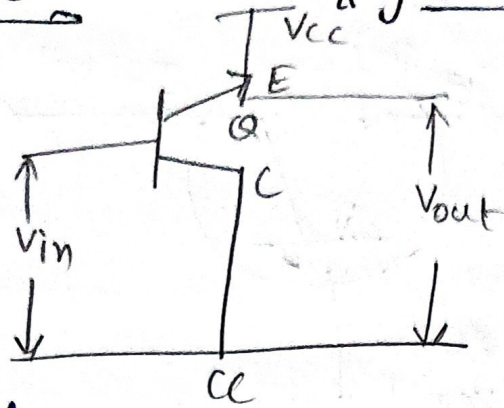 Vcc
E
Q
C
Vin
Vout
CC